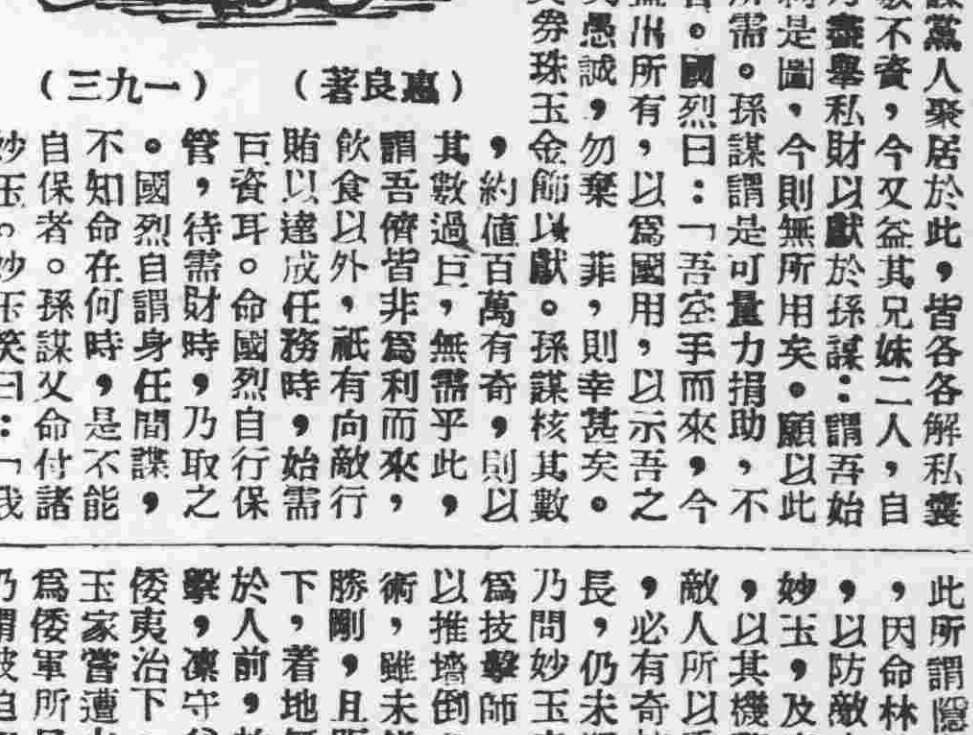 (惠良著)
(一九三)
黨人聚居於此,皆各各解私囊
不資,今又益其兄妹二人,自
盡舉私財以獻於孫謀:謂吾始
是圖,今則無所用矣。願以此
所需。孫謀謂是可量力捐助,不
。國烈曰:「吾空手而來,今
出所有,以爲國用,以示吾之
愚誠,勿棄 菲,則幸甚矣。
券珠玉金飾以獻。孫謀核其數
,約值百萬有奇,則以
其數過巨,無需乎此,
謂吾儕皆非爲利而來,
飲食以外,祇有向敵行
賄以達成任務時,始需
巨資耳。命國烈自行保
管,待需財時,乃取之
。國烈自謂身任間諜,
不知命在何時,是不能
自保者。孫謀又命付諸
妙玉。妙玉笑曰:「我
此所謂隱
,因命林
,以防敵
妙玉,及
,以其機
敵人所以
,必有奇
長,仍未
乃問妙玉
爲技擊師
以推墻倒
術,雖未
勝剛,且
下,着地
於人前,
擊,凜守
倭夷治下
玉家嘗遭
爲倭軍所
乃謂彼